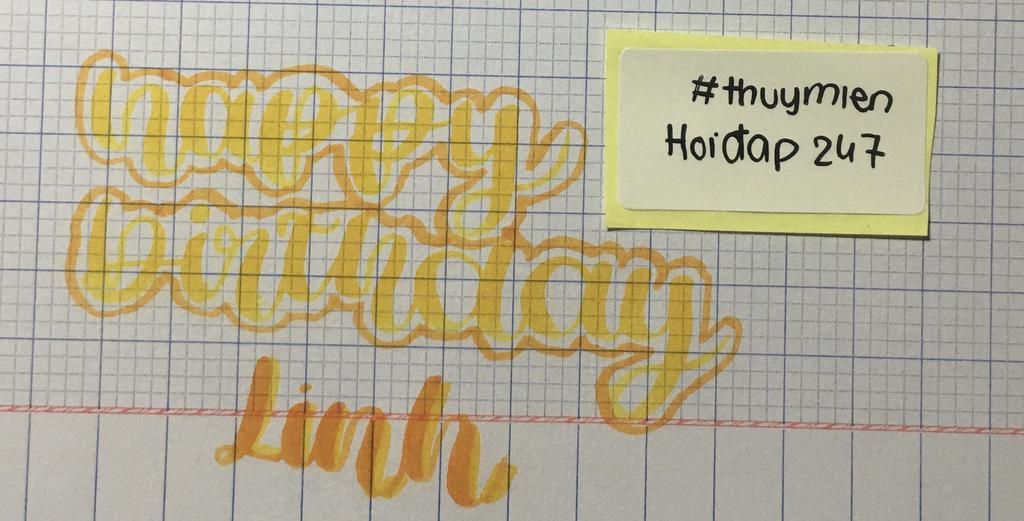 happy
birthday
Linh
#thuymien
Hoiđap 247